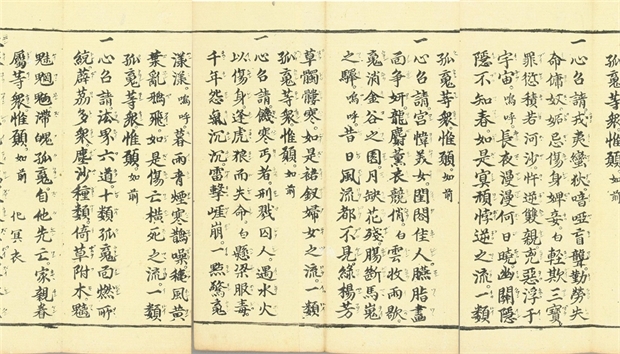 孤䰟
一心召請戎夷蠻狄喑啞盲聾勤勞失
命傭奴妬忌傷身婢妾白輕欺三寶
罪愆積若河沙忤逆雙親兇惡浮于
宇宙。嗚呼長夜漫漫何日曉幽關隱
隱不知春。如是冥頑悖逆之流一類
孤䰟等衆惟願如前
一心召請宮幃美女閨閣佳人臙脂畫
面争妍龍麝薰衣競俏。白雲收雨歇
䰟消金谷之園月缺花殘腸斷馬嵬
之驛。嗚呼昔日風流都不見綠楊芳
草髑髏寒。如是裙釵婦女之流。一類
孤䰟等衆惟願如前
一心召請饑寒丐者刑戮囚人。遇水火
以傷身逢虎狼而失命白懸梁服毒
千年怨氣沉沉雷擊崖崩。一點驚䰟
漾漾。嗚呼暮雨青煙寒鵲噪穐風黄
葉亂鴉飛。如是傷亡橫死之流。一類
孤䰟等衆惟願如前
一心召請法界六道。十類孤䰟面燃所
統薜荔多衆塵沙種類倚草附木魑
魅魍魎滯魄孤䰟自他先亡。家親眷
屬等衆惟願如前 化冥衣